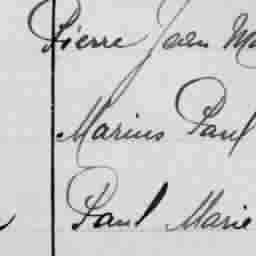 Pierre Jean Ma
Marius Paul
Paul Marie